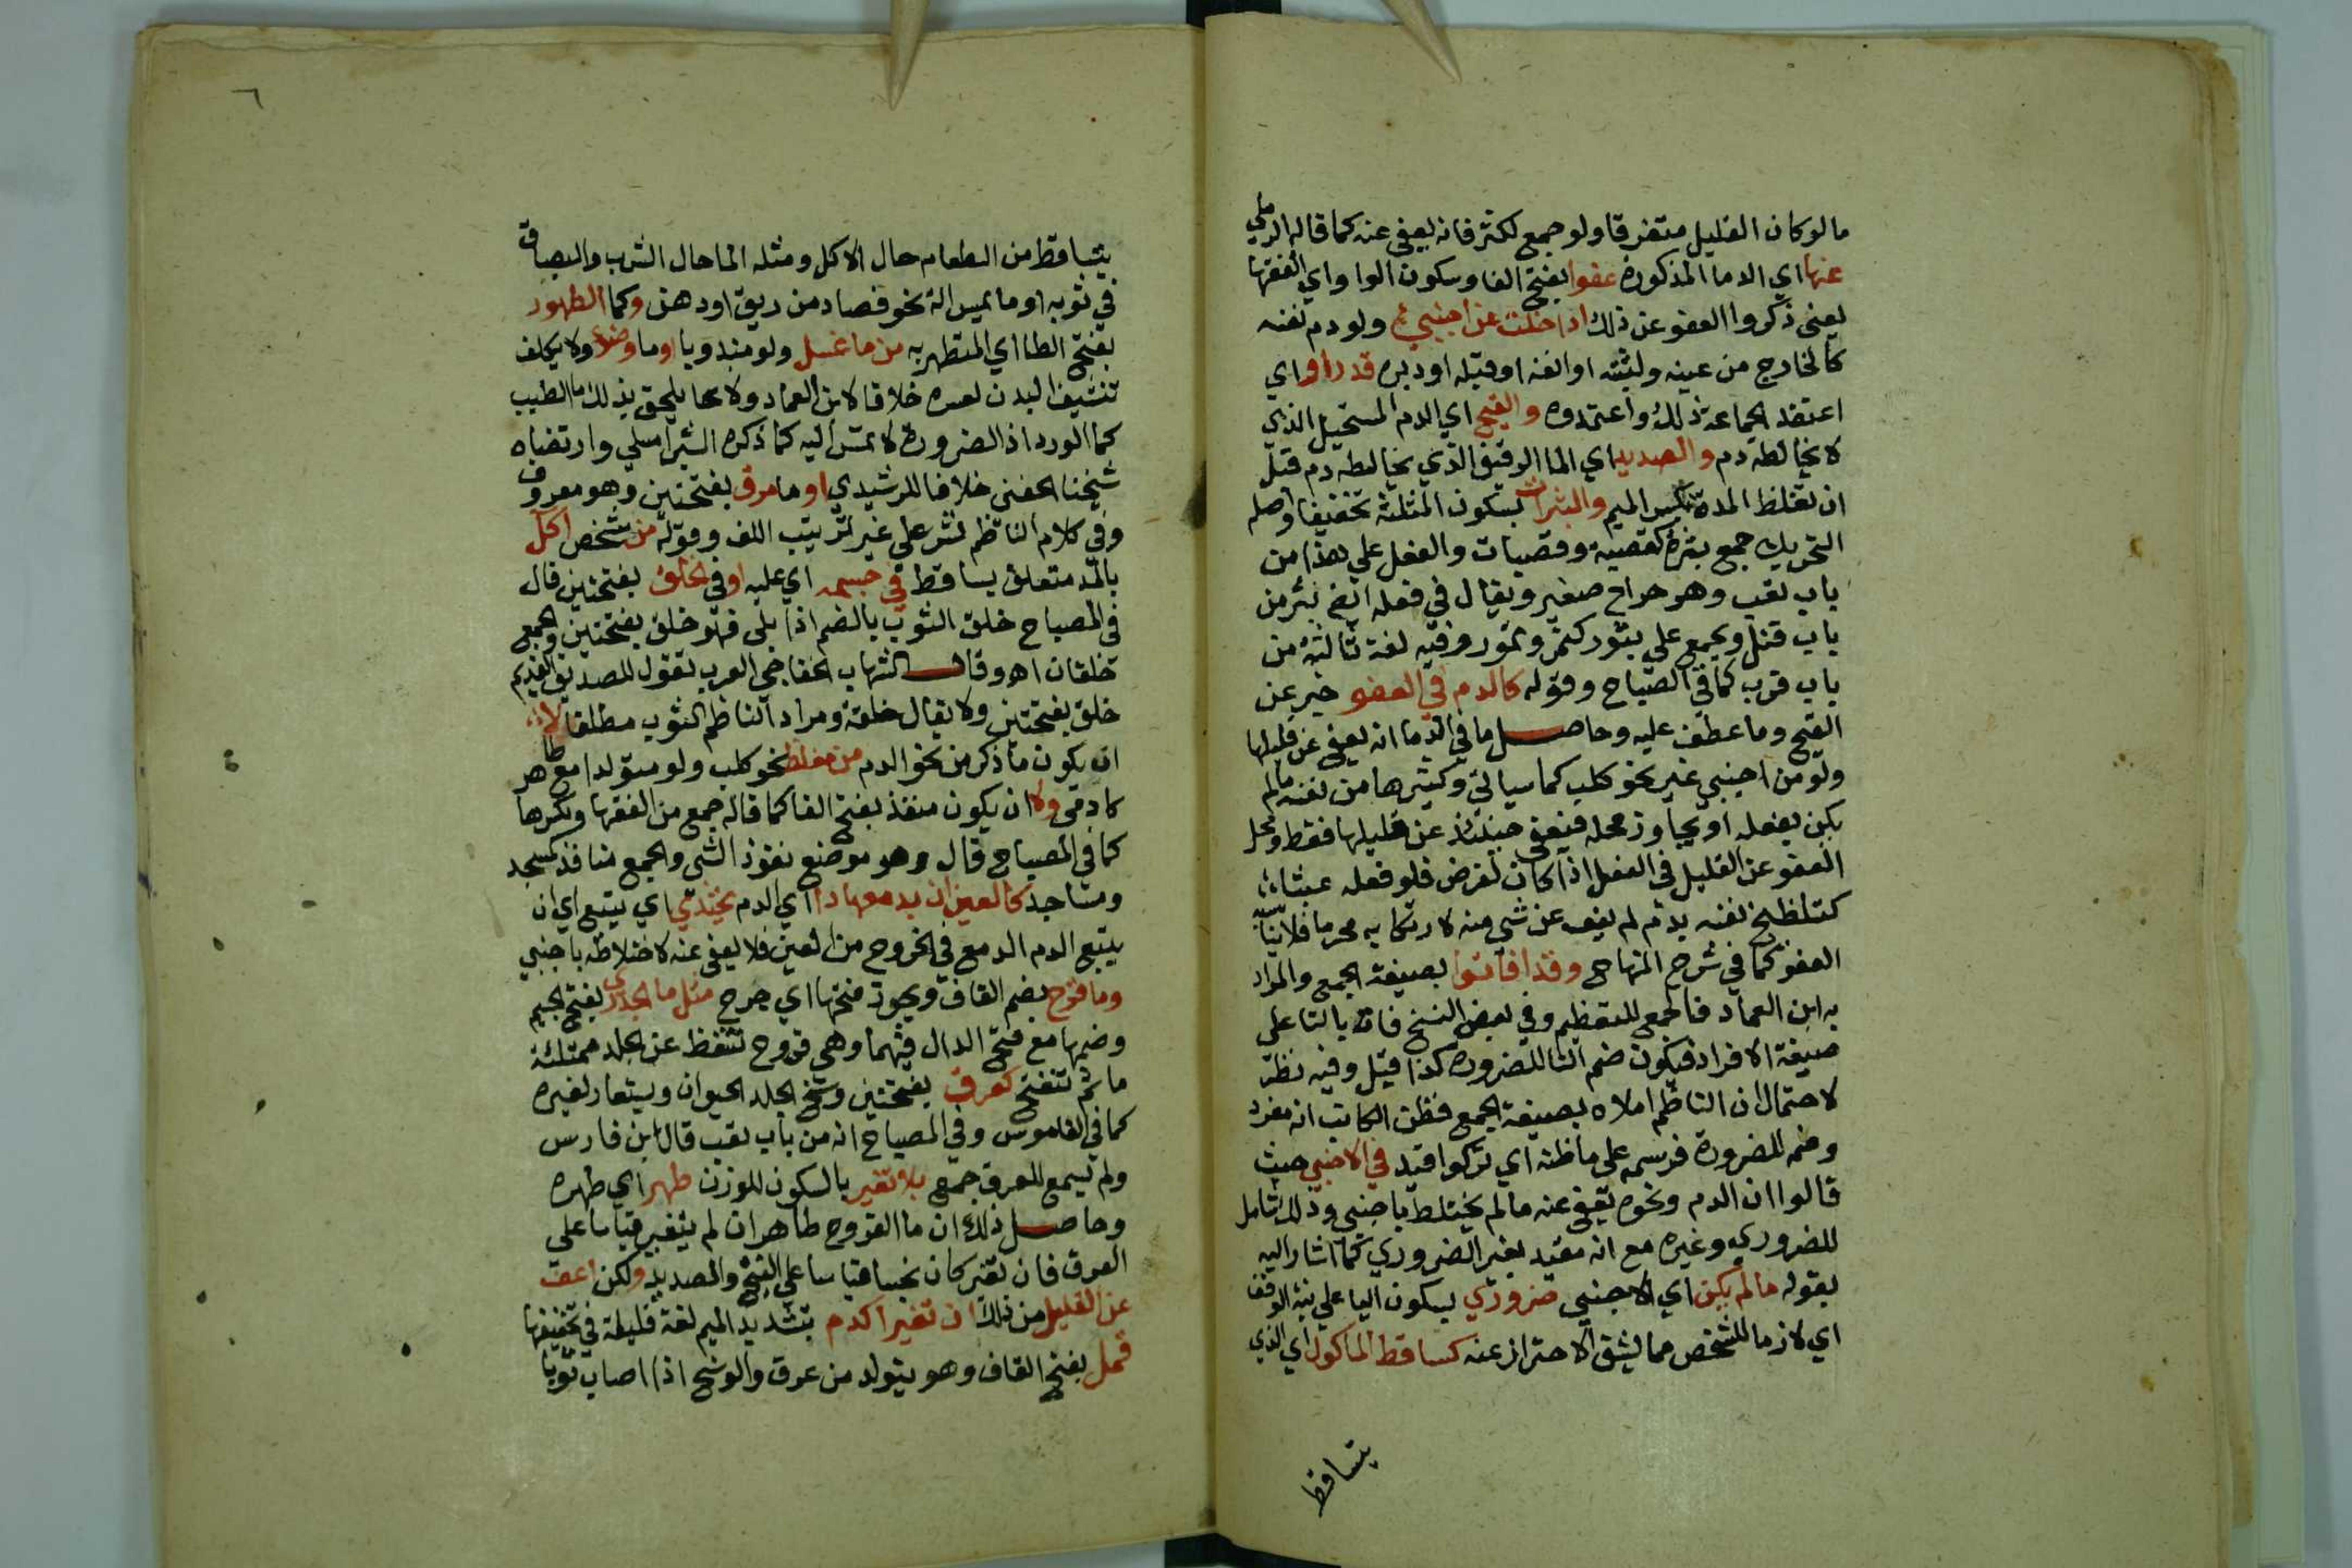 ما لو كان القليل متفرقا ولو جمع لكثر فانه يعفى عنه كما قاله الرملي
عنها اي الدما المذكورة عفوا بفتح الفا وسكون الواو اي الفقها
يعني ذكروا العفو عن ذلك اذا خلت عن اجنبي ولو دم نفسه
كالخارج من عينه ولثته او انفه او قبله او دبره قدراوا اي
اعتقد الجماعة ذلك واعتمدوه والقيح اي الدم المستحيل الذي
لا يخالطه دم والصديد اي الما الرقيق الذي يخالطه دم قبل
ان تغلظ المدة بكسر الميم والبثرات بسكون المثلثة تخفيفا واصله
التحريك جمع بثرة كقصبة وقصبات والفعل على هذا من
باب تعب وهو خراج صغير ويقال في فعله ايضا بثر من
باب قتل ويجمع على بثور كتمر وتمور وفيه لغة ثالثة من
باب قرب كما في المصباح وقوله كالدم في العفو خبر عن
القيح وما عطف عليه وحاصل ما في الدما انه يعفى عن قليلها
ولو من اجنبي غير نحو كلب كما سياتي وكثيرها من نفسه ما لم
يكن بفعله او يجاوز محله فيعفى حينئذ عن قليلها فقط ومحل
العفو عن القليل في الفعل اذا كان لغرض فلو فعله عبثا
كتلطيخ نفسه بدم لم يعف عن شي منه لارتكابه محرما فلا يناسبه
العفو كما في شرح المنهاج وقد افاتوا بصيغة الجمع والمراد
به ابن العماد فالجمع للتعظيم وفي بعض النسخ فات بالتا على
صيغة الافراد فيكون ضم التا للضرورة كذا قيل وفيه نظر
لاحتمال ان الناظم املاه بصيغة الجمع فظن الكاتب انه مفرد
وضم للضرورة فرسمه على ما ظنه اي تركوا قيد في الاجنبي حيث
قالوا ان الدم ونحوه يعفى عنه ما لم يختلط باجنبي وذلك شامل
للضروري وغيره مع انه مقيد بغير الضروري كما اشار اليه
بقوله ما لم يكن اي الاجنبي ضروري بسكون اليا على نية الوقف
اي لازما للشخص مما يشق الاحتراز عنه كساقط الماكول اي الذي
يتساقط
٦
يتساقط من الطعام حال الاكل ومثله الما حال الشرب والبصاق
في ثوبه او ما يمس الة نحو فصاد من ريق او دهن وكما الطهور
بفتح الطا اي المتطهر به من ما غسل ولو مندوبا او ما وضوء ولا يكلف
تنشيف البدن لعسره خلافا لابن العماد ولا يلحق بذلك ما الطيب
كما الورد اذ الضرورة لا تمس اليه كما ذكره الشبراملسي وارتضاه
شيخنا الحفني خلافا للرشيدي او ما مرق بفتحتين وهو معروف
وفي كلام الناظم نشر على غير ترتيب اللف وقوله من شخص اكل
بالمد متعلق بساقط في جسمه اي عليه او في الخلق بفتحتين قال
في المصباح خلق الثوب بالضم اذا بلى فهو خلق بفتحتين والجمع
خلقان اهـ وقال الشهاب الخفاجي العرب تقول للصديق القديم
خلق بفتحتين ولا يقال خلقة ومراد الناظم الثوب مطلقا لا
ان يكون ما ذكر من نحو الدم من مغلظ نحو كلب ولو متولدا مع طاهر
كادمي ولا ان يكون منفذ بفتح الفا كما قاله جمع من الفقها وبكسرها
كما في المصباح قال وهو موضع نفوذ الشي والجمع منافذ كمسجد
ومساجد كالعين ان بدمعها دا اي الدم يحتذي اي يتبع اي ان
يتبع الدم الدمع في الخروج من العين فلا يعفى عنه لاختلاطه باجنبي
وما قرح بضم القاف ويجوز فتحها اي جرح مثل ما الجدري بفتح الجيم
وضمها مع فتح الدال فيهما وهي قروح تنفط عن الجلد ممتلئة
ما ثم تنفتح كعرق بفتحتين رشح الجلد الحيوان ويستعار لغيره
كما في القاموس وفي المصباح انه من باب تعب قال ابن فارس
ولم يسمع للعرق جمع بلا تغير بالسكون للوزن طهر اي طهره
وحاصل ذلك ان ما القروح طاهر ان لم يتغير قياسا على
العرق فان تغير كان نجسا قياسا على القيح والصديد ولكن اعف
عن القليل من ذلك ان تغير اكدم بتشديد الميم لغة قليلة في تخفيفها
قمل بفتح القاف وهو يتولد من عرق والوسخ اذا اصاب ثوبا